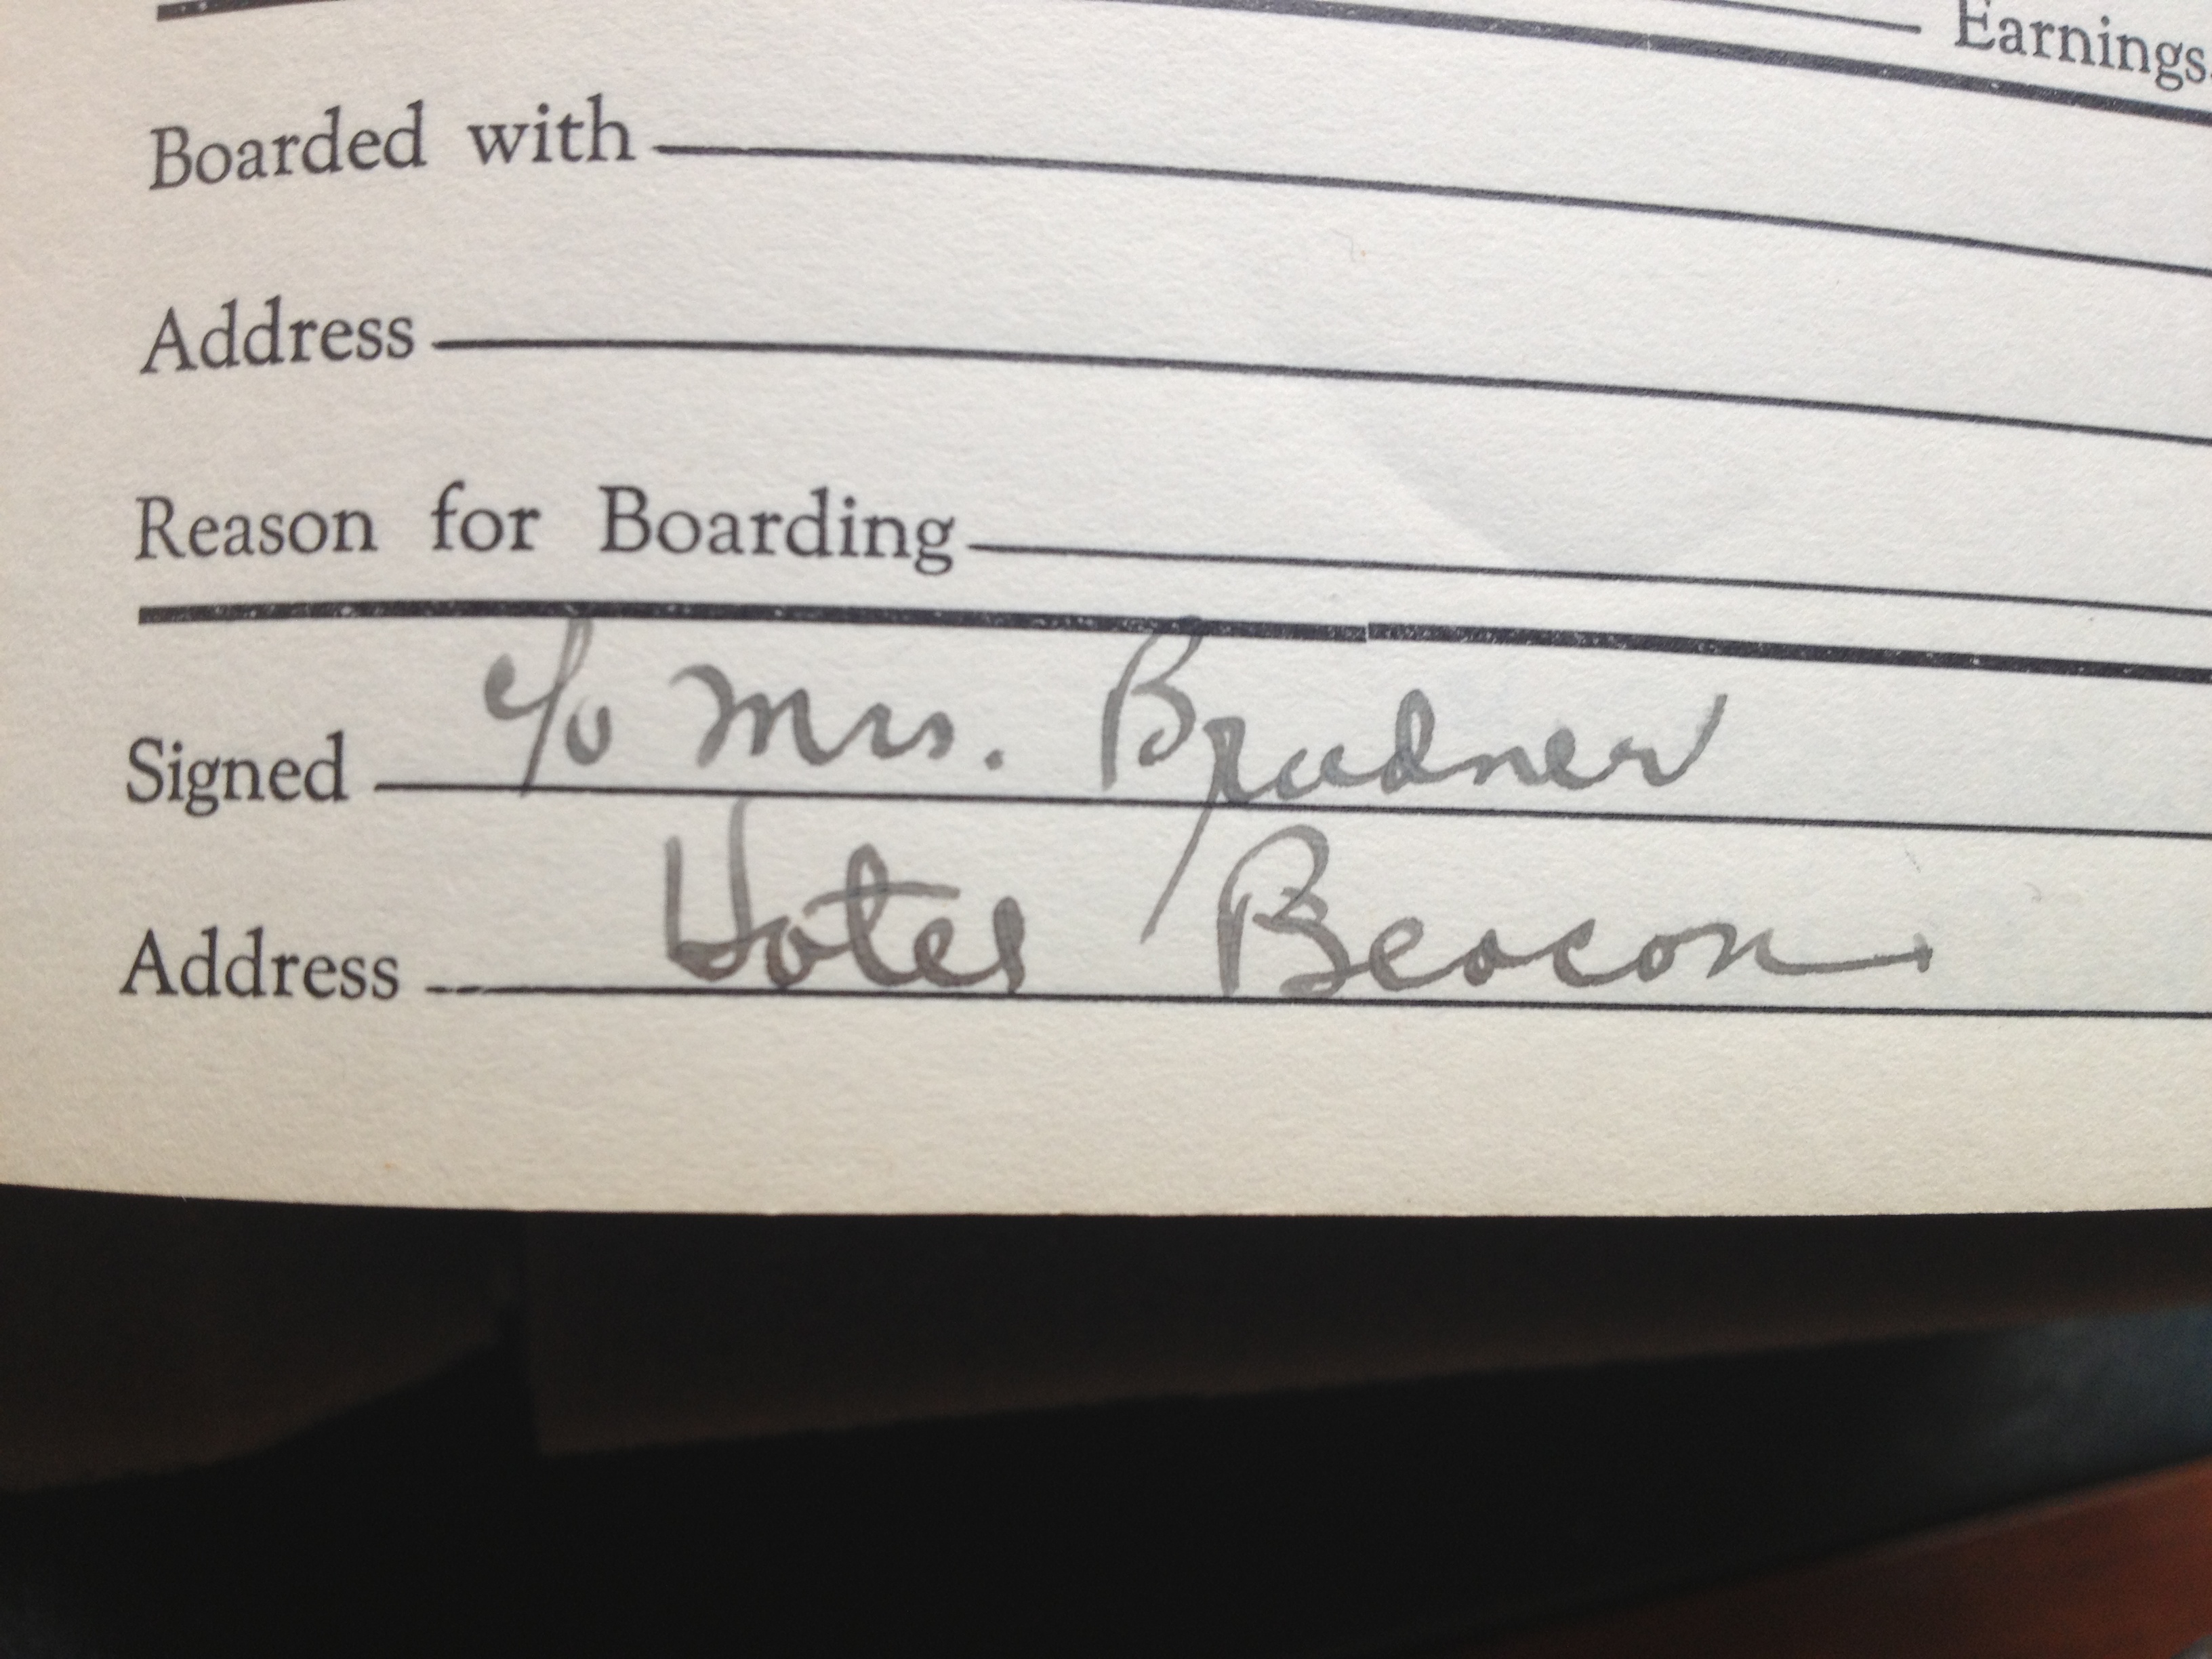 Earnings
Boarded with
Address
Reason for Boarding
Signed c/o Mrs. Brudner
Address Hotel Beacon